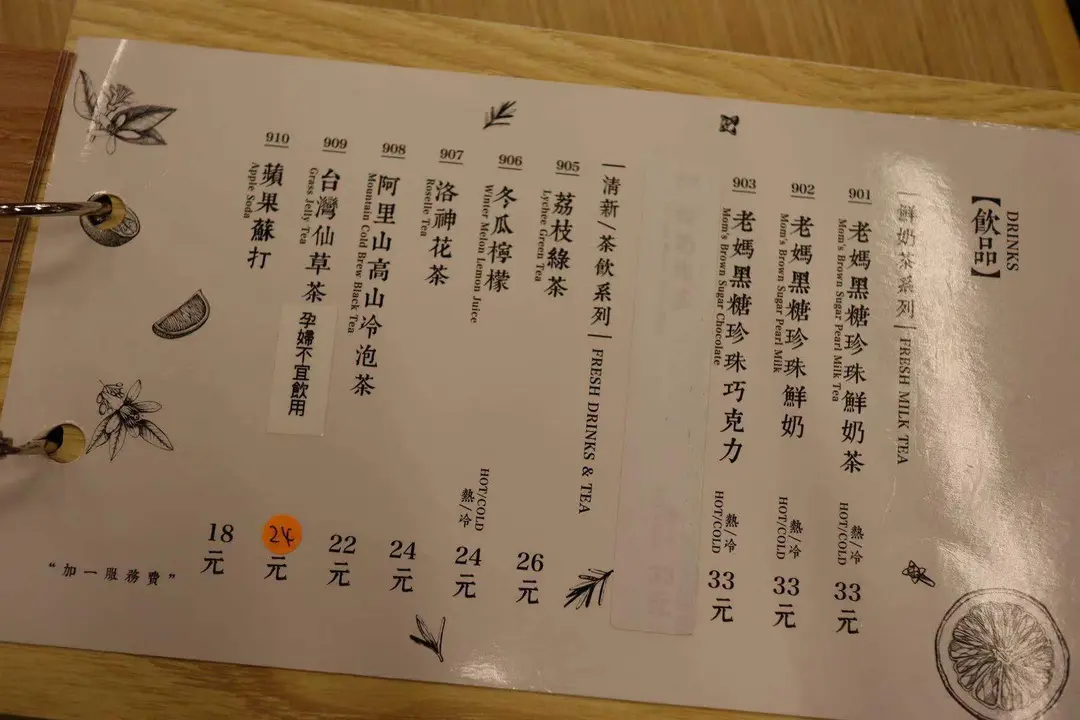 DRINKS
【飲品】
鮮奶茶系列 | FRESH MILK TEA
901
老媽黑糖珍珠鮮奶茶
Mom's Brown Sugar Pearl Milk Tea
熱/冷
HOT/COLD
33元
902
老媽黑糖珍珠鮮奶
Mom's Brown Sugar Pearl Milk
熱/冷
HOT/COLD
33元
903
老媽黑糖珍珠巧克力
Mom's Brown Sugar Chocolate
熱/冷
HOT/COLD
33元
清新/茶飲系列 | FRESH DRINKS & TEA
905
荔枝綠茶
Lychee Green Tea
26元
906
冬瓜檸檬
Winter Melon Lemon Juice
HOT/COLD
熱/冷
24元
907
洛神花茶
Roselle Tea
24元
908
阿里山高山冷泡茶
Mountain Cold Brew Black Tea
22元
909
台灣仙草茶
Grass Jelly Tea
孕婦不宜飲用
24元
910
蘋果蘇打
Apple Soda
18元
“加一服務費”